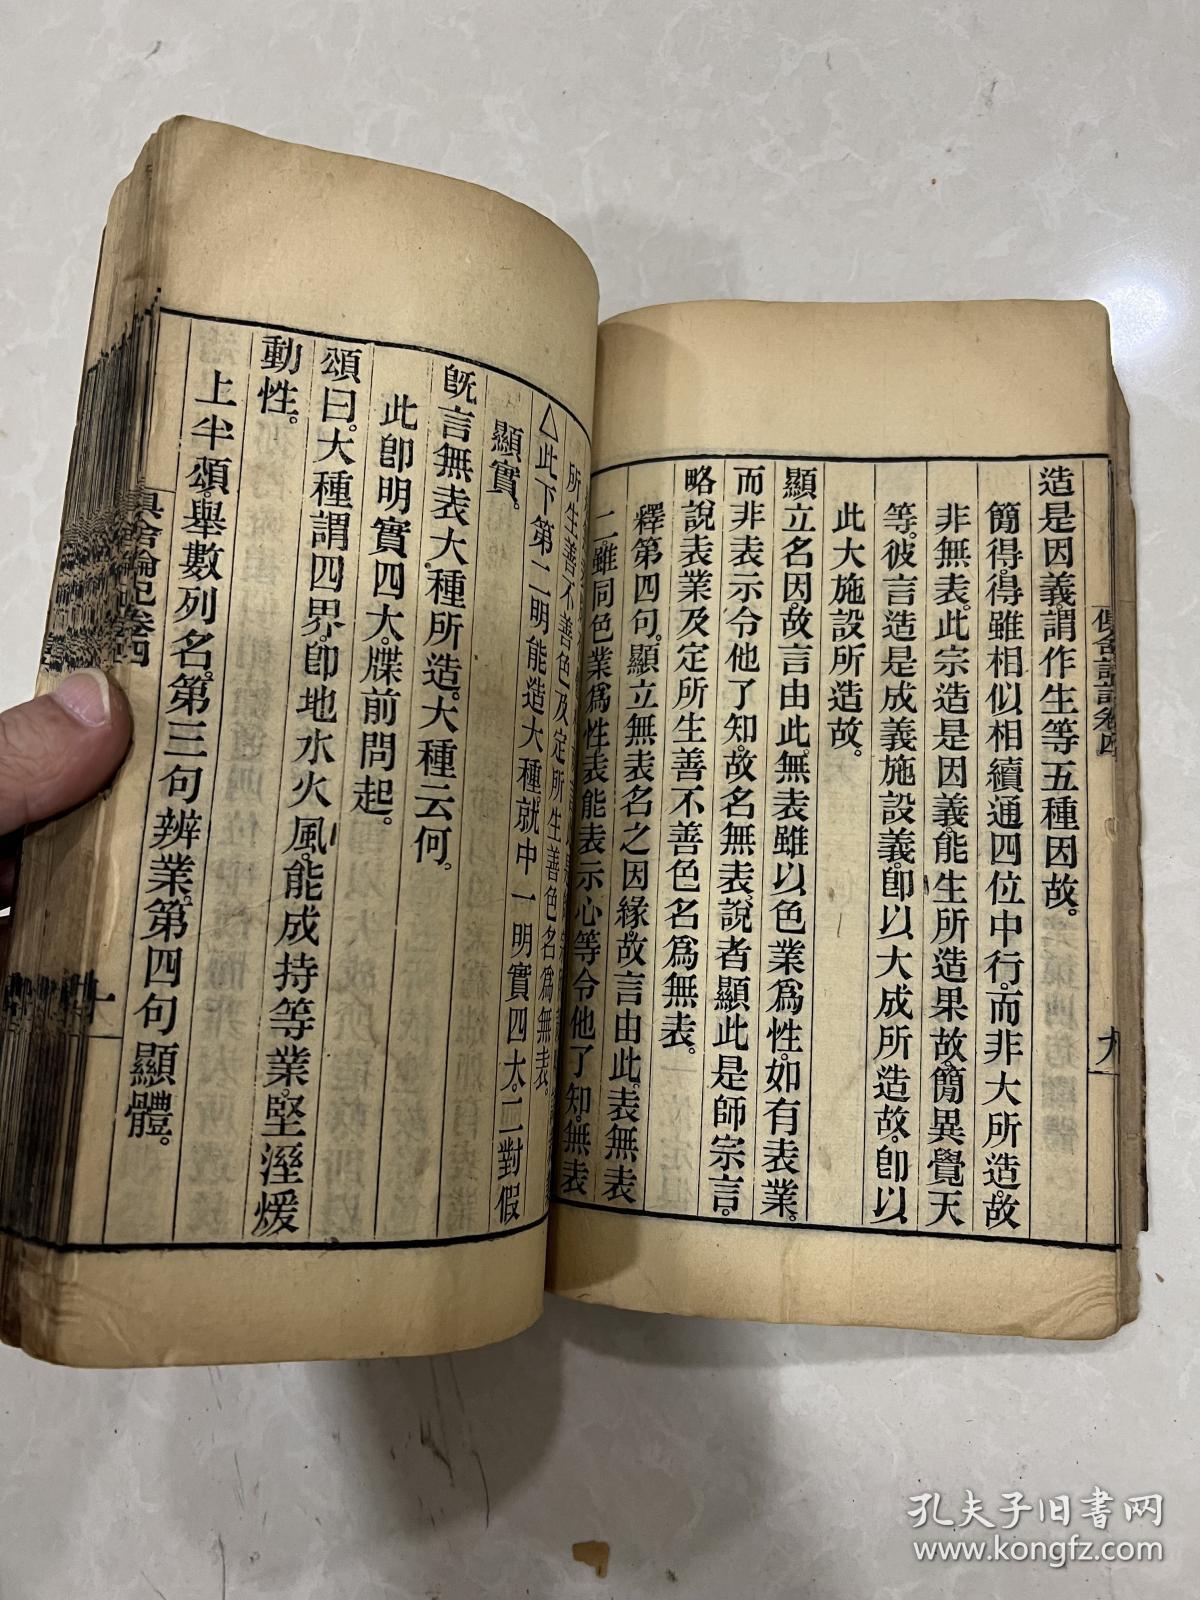 造是因義。謂作生等五種因故。
簡得。得雖相似相續通四位中行。而非大所造。故
非無表。此宗造是因義。能生所造果故。簡異覺天
等。彼言造是成義施設義。卽以大成所造故。卽以
此大施設所造故。
顯立名因。故言由此。無表雖以色業爲性。如有表業。
而非表示令他了知。故名無表。說者顯此是師宗言。
略說表業及定所生善不善色名爲無表。
釋第四句。顯立無表名之因緣。故言由此。表無表
二雖同色業爲性。表能表示心等令他了知。無表
所生善不善色及定所生善色名爲無表。
△此下第二明能造大種。就中一明實四大。二對假
顯實。
旣言無表大種所造。大種云何。
此卽明實四大。牒前問起。
頌曰。大種謂四界。卽地水火風。能成持等業。堅溼煖
動性。
上半頌。舉數列名。第三句辨業。第四句顯體。
俱舍論記卷四
九
孔夫子旧书网
www.kongfz.com